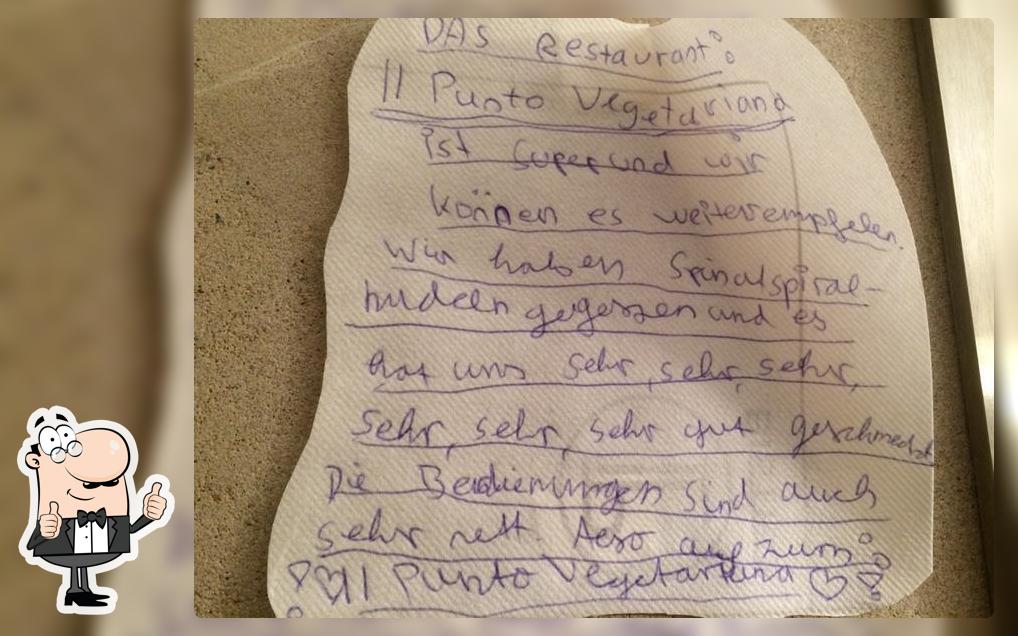 DAS Restaurant:
Il Punto Vegetariana
ist super und wir
können es weiterempfelen.
Wir haben Spinatspiral-
nudeln gegessen und es
hat uns sehr, sehr, sehr,
sehr, sehr, sehr gut geschmeckt
Die Bedienungen sind auch
sehr nett. Also auf zum:
!♡Il Punto Vegetariana♡!